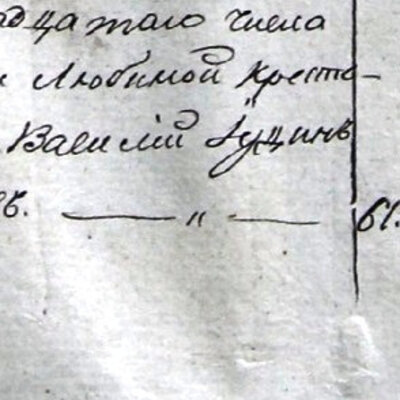 дцатаго числа
Любимой кресть-
Василій Гуцинъ
— " — 61.